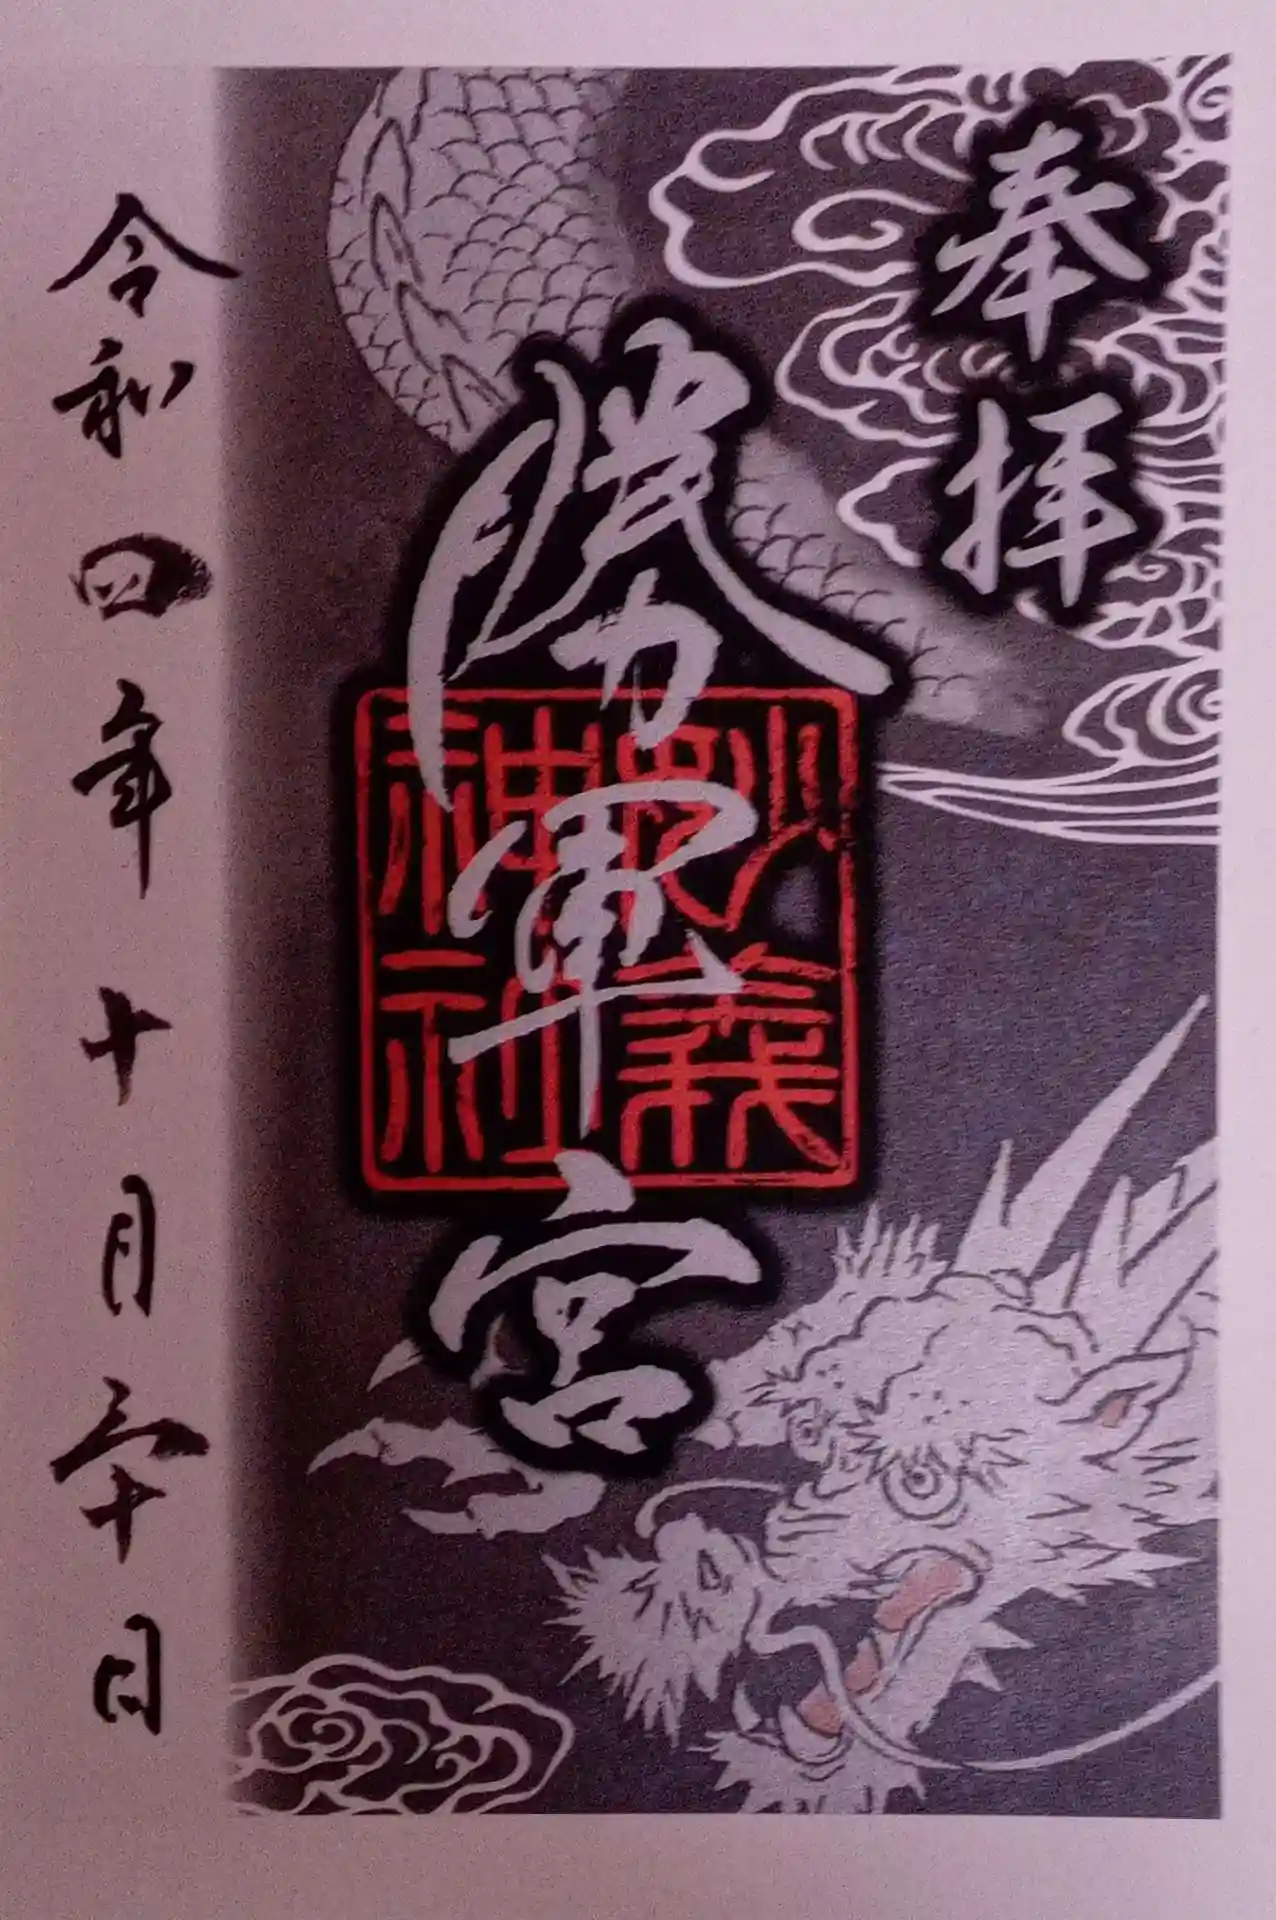 奉拝
勝軍宮
妙義
神社
令和四年十月三十日